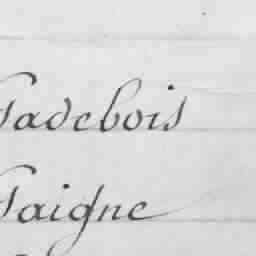 Gadebois
Gaigne